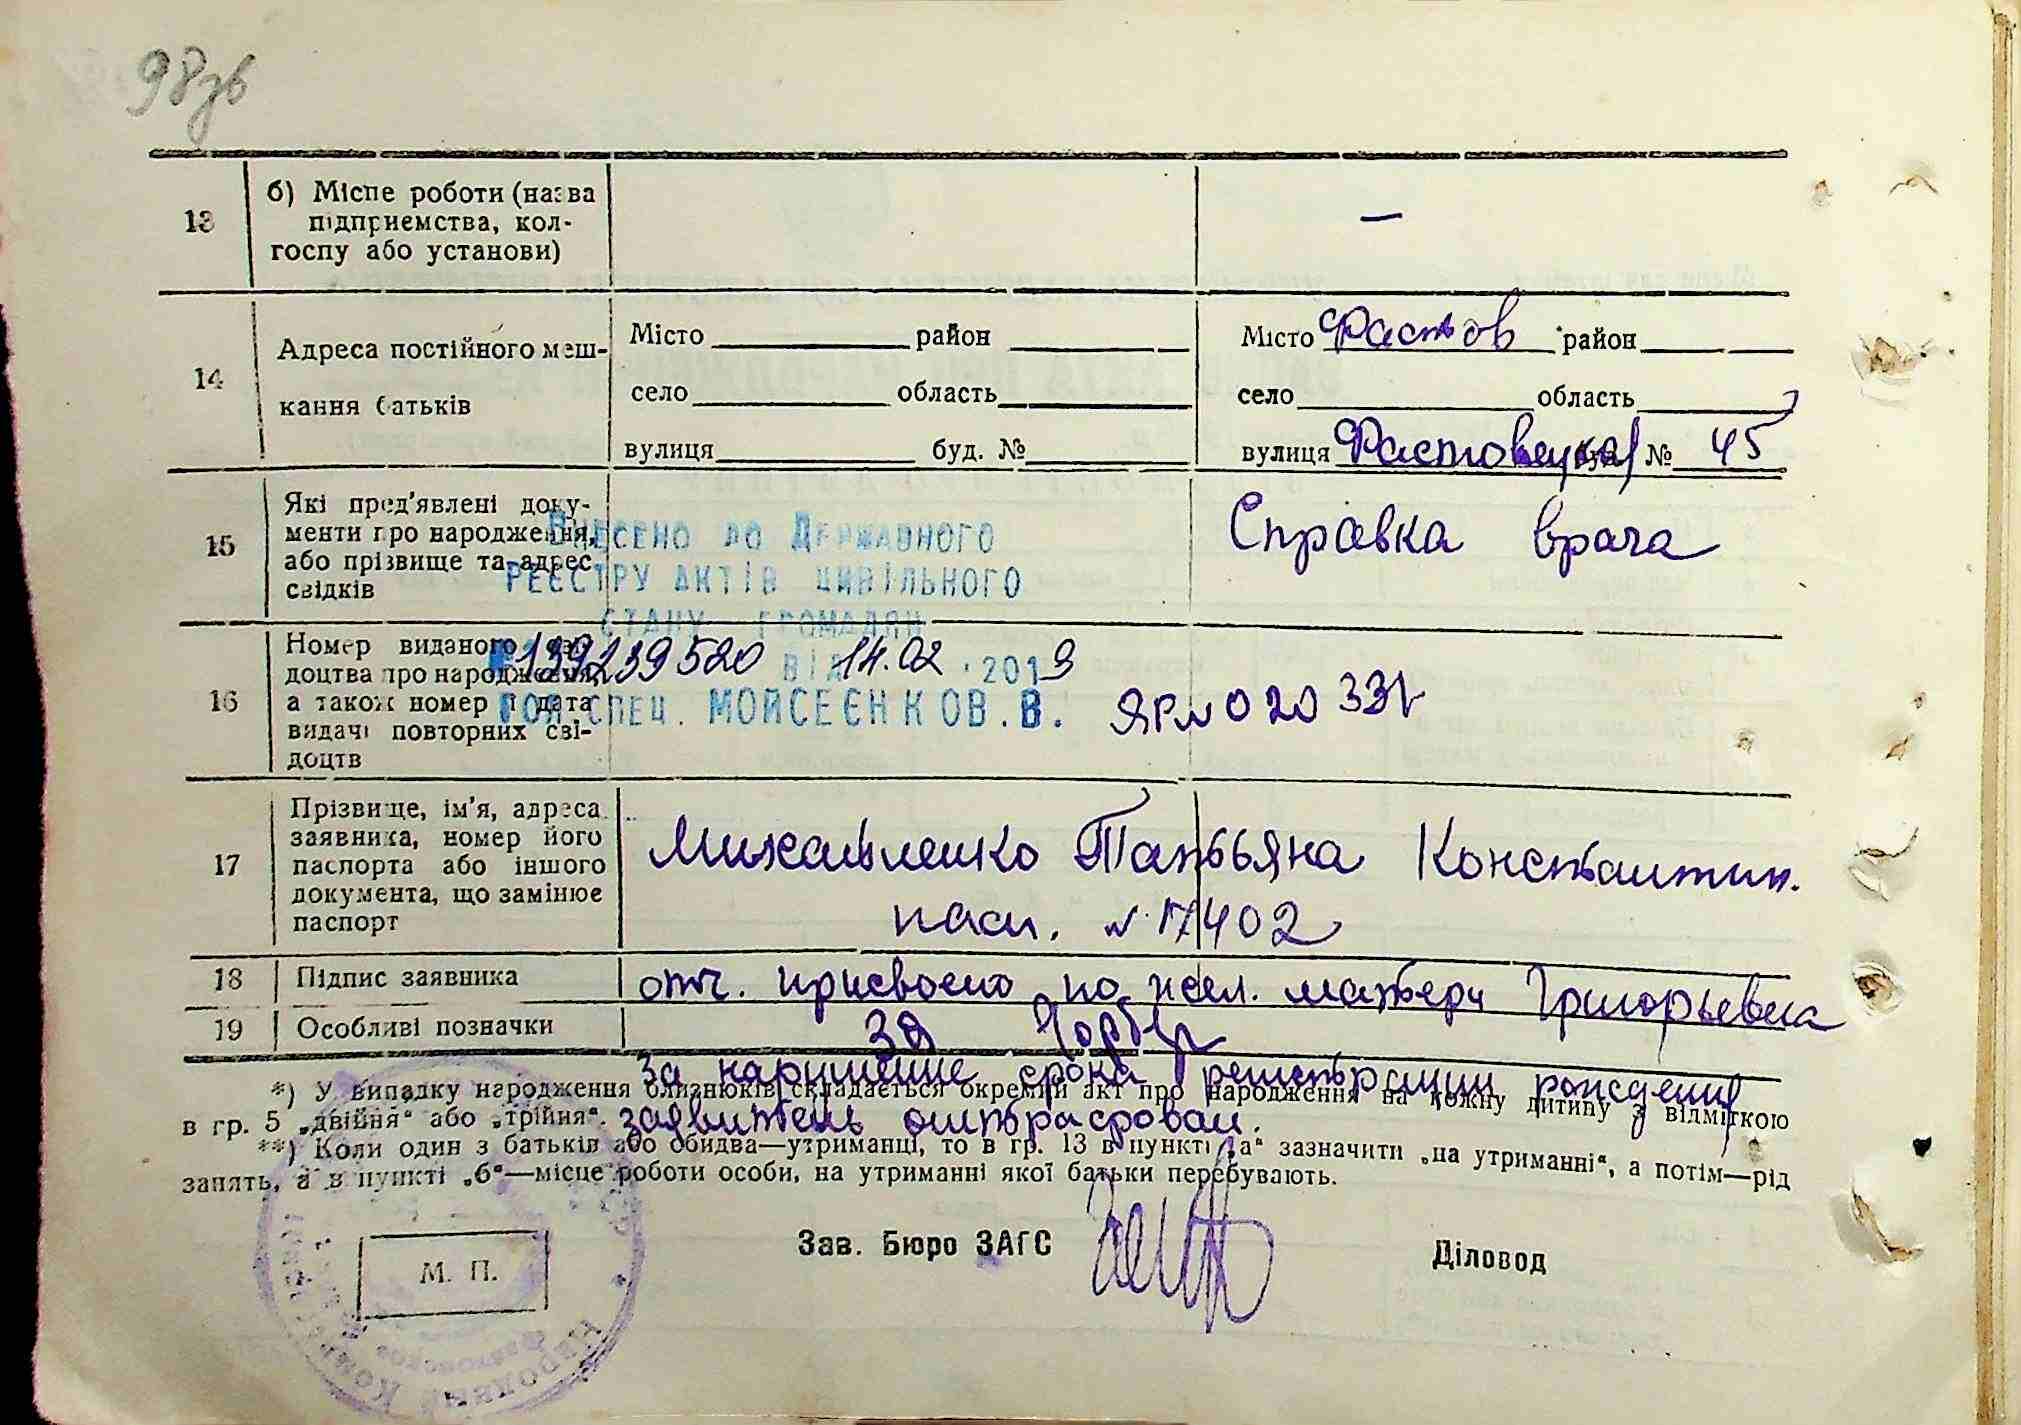 98зв
13
б) Місце роботи (назва
підприємства, кол-
госпу або установи)
—
14
Адреса постійного меш-
кання батьків
Місто район
село область
вулиця буд. №
Місто Фастов район
село область
вулиця Фастовецкая буд. № 45
15
Які пред'явлені доку-
менти про народження,
або прізвище та адрес
свідків
Справка врача
Внесено до Державного
реєстру актів цивільного
стану громадян
139239520 від 14.02.2019
гол.спец. Мойсеєнко В.В.
16
Номер виданого сві-
доцтва про народження,
а також номер і дата
видачі повторних сві-
доцтв
ЯР № 020331
17
Прізвище, ім'я, адреса
заявника, номер його
паспорта або іншого
документа, що замінює
паспорт
Михайленко Татьяна Константин.
пасп. № 17402
18
Підпис заявника
отч. присвоено по жел. матери Григорьевна
19
Особливі позначки
За нарушение срока регистрации рождения
заявитель оштрафован.
*) У випадку народження близнюків складається окремий акт про народження на кожну дитину з відміткою
в гр. 5 „двійня“ або „трійня“.
**) Коли один з батьків або обидва—утриманці, то в гр. 13 в пункті „а“ зазначити „на утриманні“, а потім—рід
занять, а в пункті „б“—місце роботи особи, на утриманні якої батьки перебувають.
М. П.
Зав. Бюро ЗАГС
Діловод